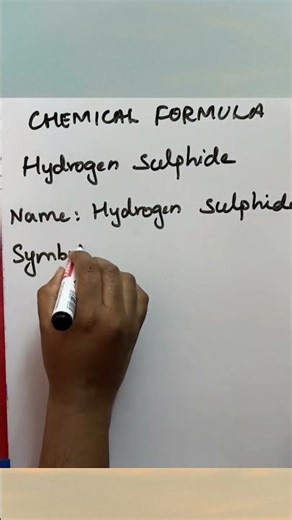 CHEMICAL FORMULA
Hydrogen Sulphide
Name: Hydrogen Sulphide
Symb